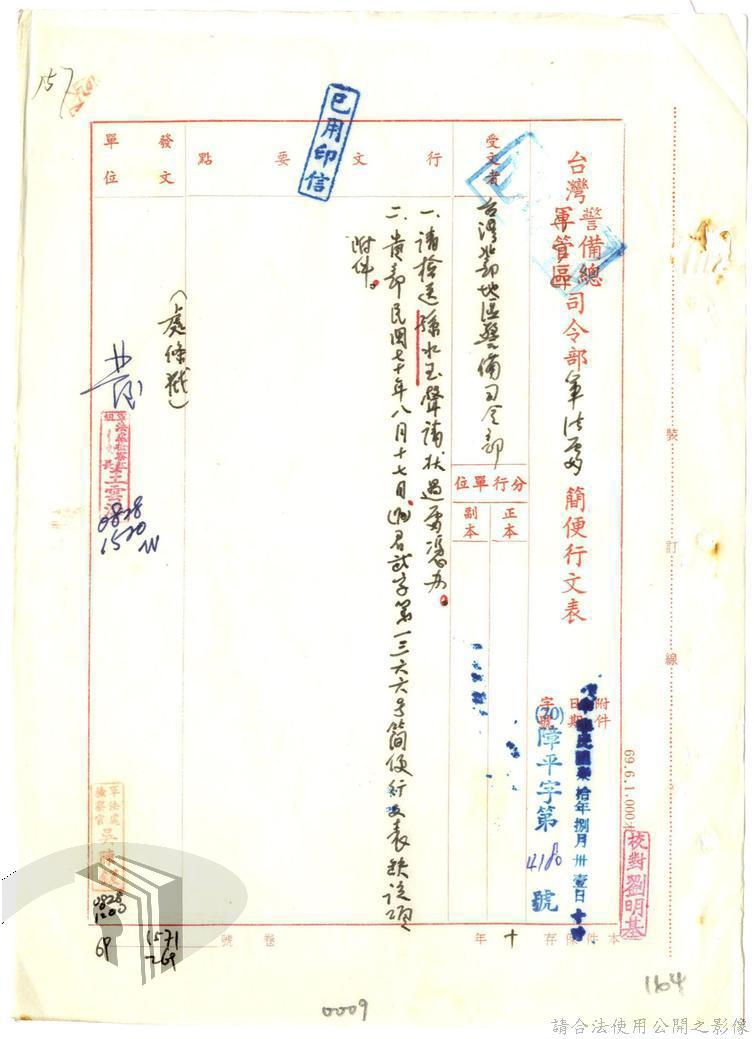 157
已用印信
台灣警備總司令部軍法處簡便行文表
軍管區
受文者
台灣北部地區警備司令部
分行單位
正本
副本
附件
日期
字號
中華民國柒拾年捌月卅壹日十時
(70)障平字第4180號
行文要點
一、請檢送孫水玉聲請狀過處憑辦。
二、貴部民國七十年八月十七日
字第一三六六號簡便行文表缺該項
附件。
發文單位
(處條戳)
0828
1520
軍法處
檢察官
0828
69
1571
269
本件保存十年
卷號
裝訂線
69.6.1.000
校對劉明基
1164
0009
請合法使用公開之影像